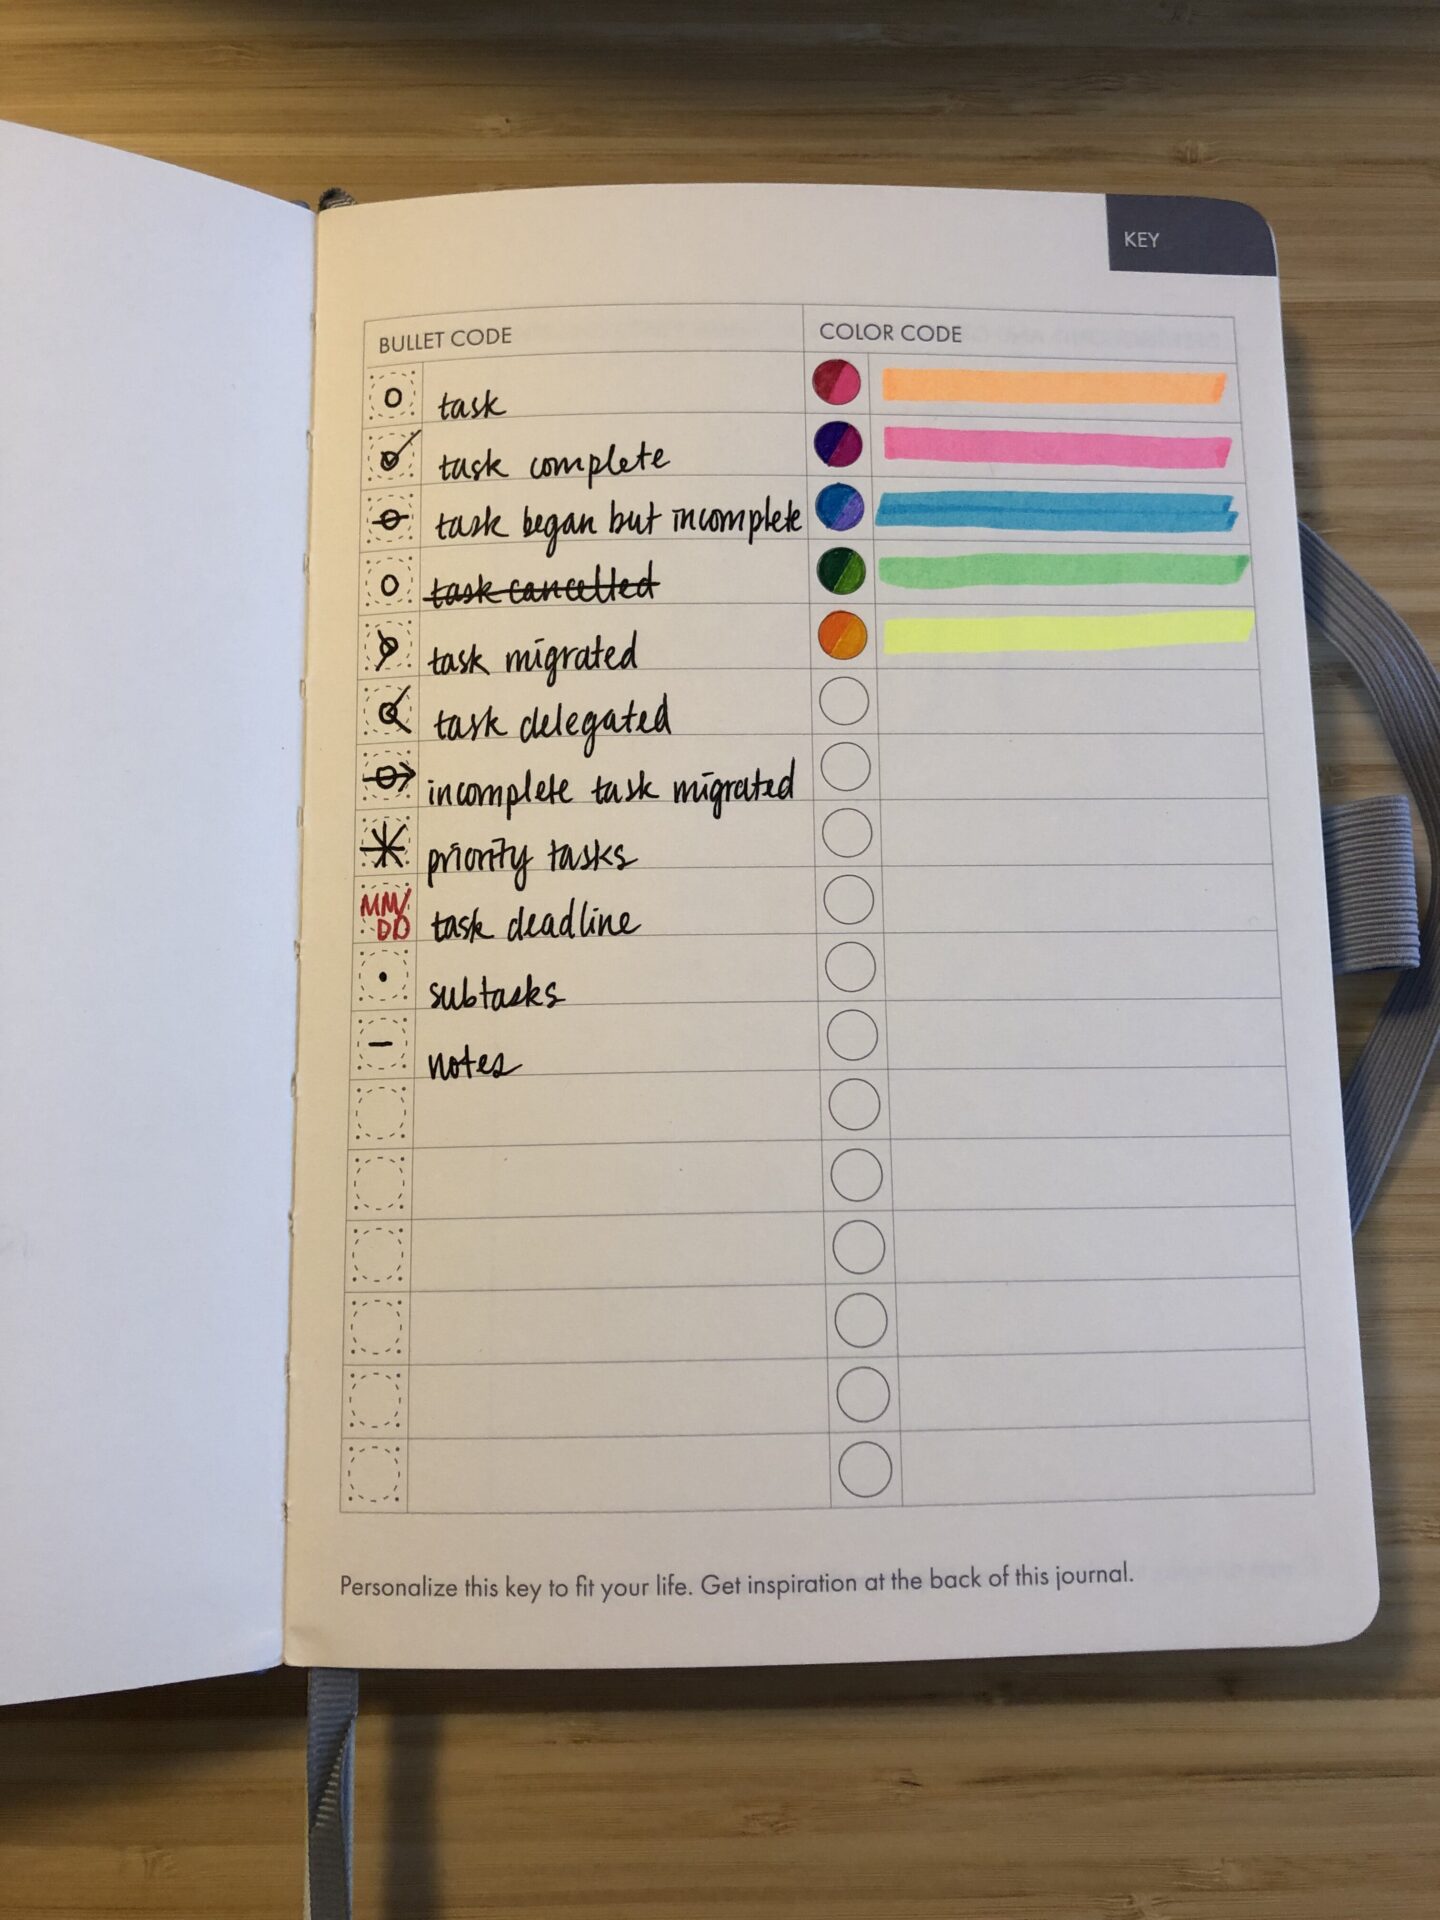 KEY
BULLET CODE
COLOR CODE
task
task complete
task began but incomplete
task cancelled
task migrated
task delegated
incomplete task migrated
priority tasks
MM/DD task deadline
subtasks
notes
Personalize this key to fit your life. Get inspiration at the back of this journal.